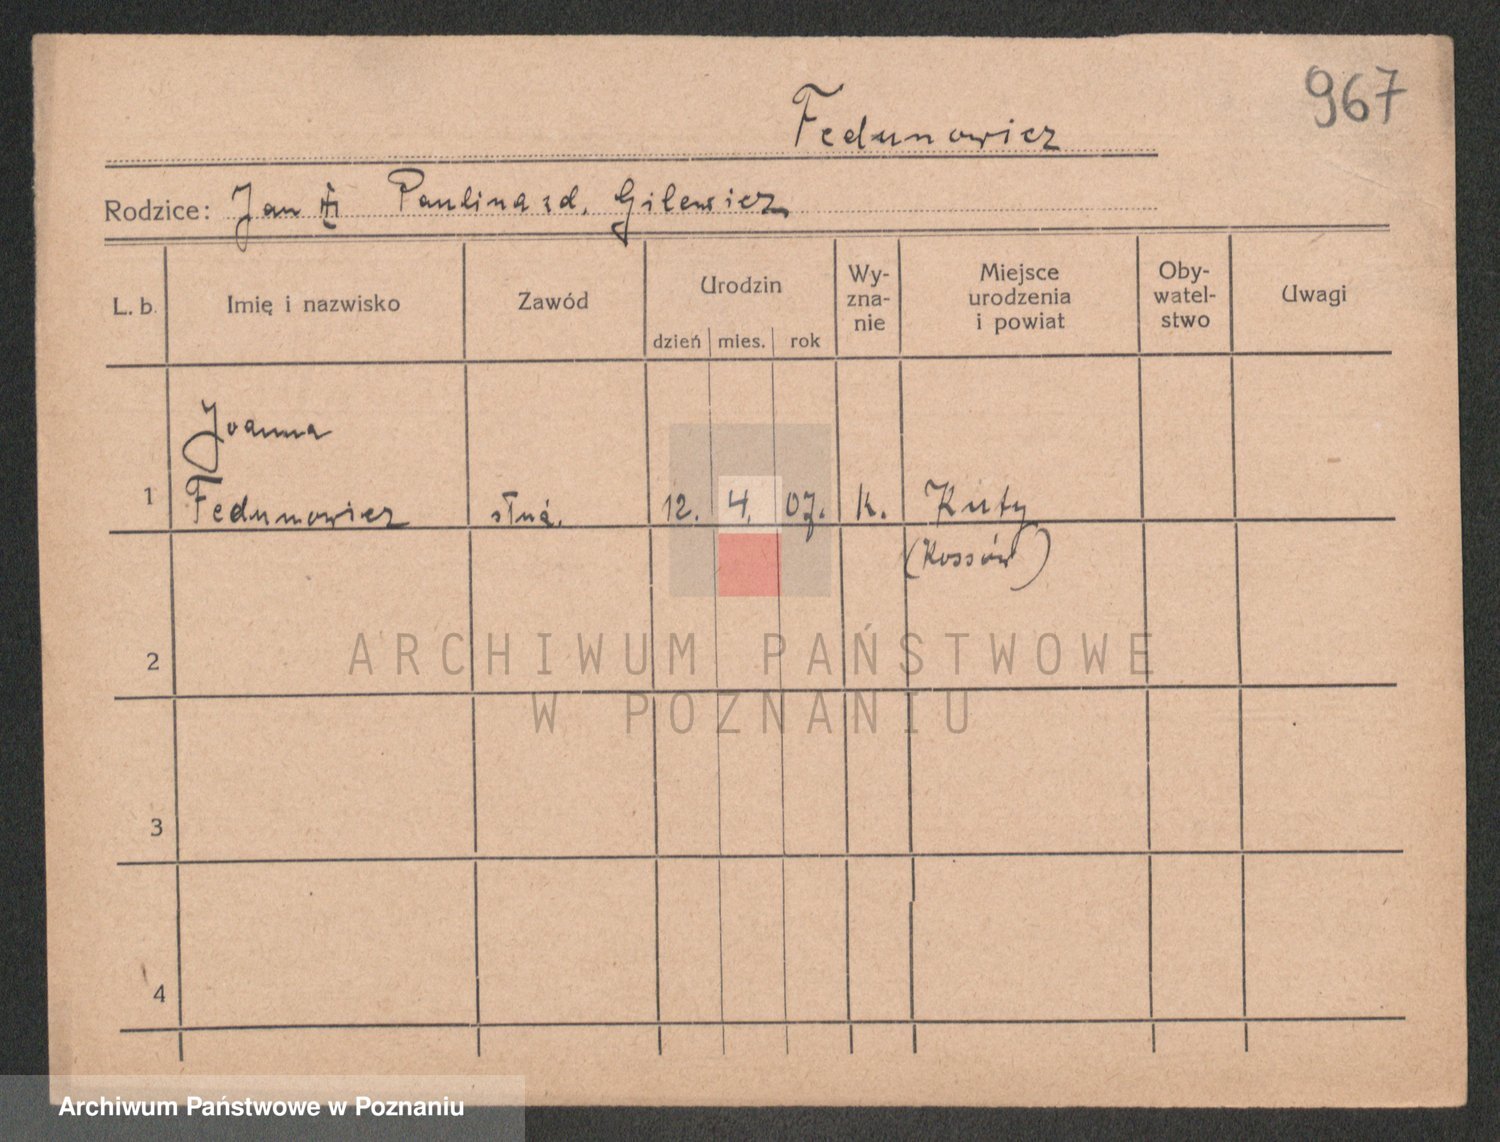 967
Fedunowicz
Rodzice: Jan Paulina zd. Gilewicz
L. b. Imię i nazwisko Zawód Urodzin dzień mies. rok Wy-zna-nie Miejsce urodzenia i powiat Oby-watel-stwo Uwagi
Joanna
1 Fedunowicz służ. 12. 4. 07. k. Kuty
(Kossów)
2
ARCHIWUM PAŃSTWOWE
W POZNANIU
3
4
Archiwum Państwowe w Poznaniu